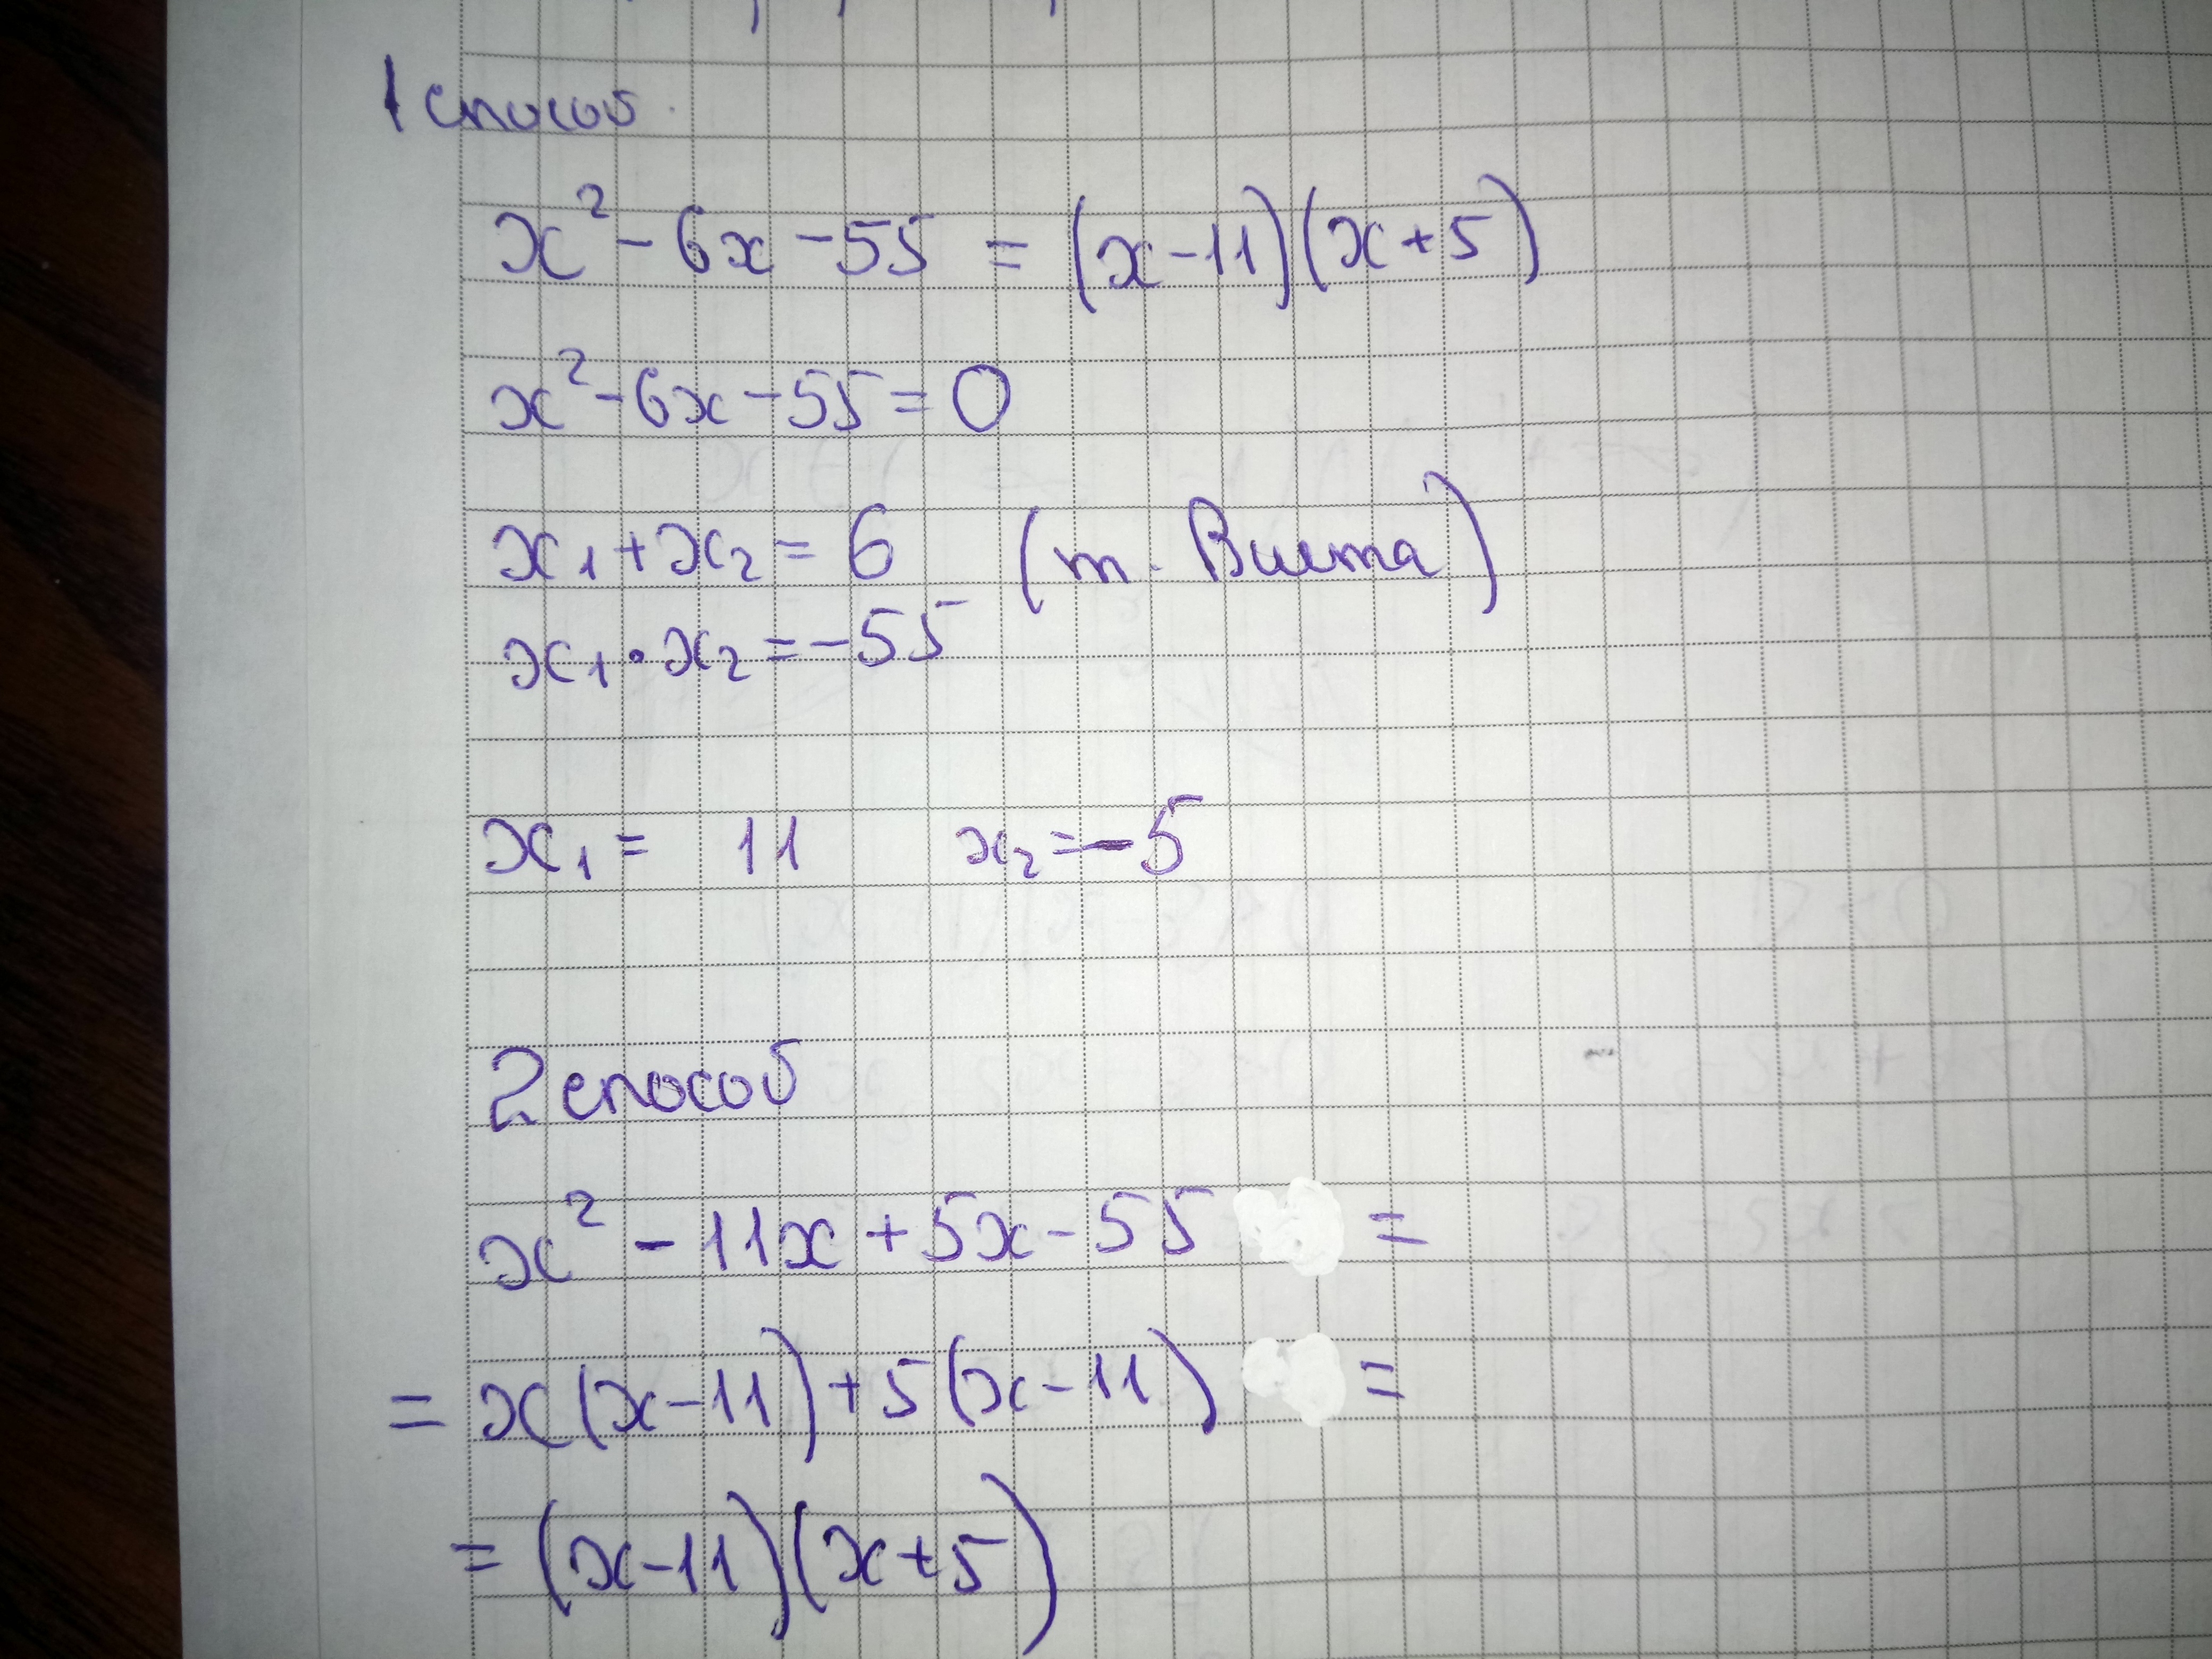 1 способ
x² - 6x - 55 = (x - 11)(x + 5)
x² - 6x - 55 = 0
x₁ + x₂ = 6 (т. Виета)
x₁ · x₂ = -55
x₁ = 11 x₂ = -5
2 способ
x² - 11x + 5x - 55 =
= x(x - 11) + 5(x - 11) =
= (x - 11)(x + 5)